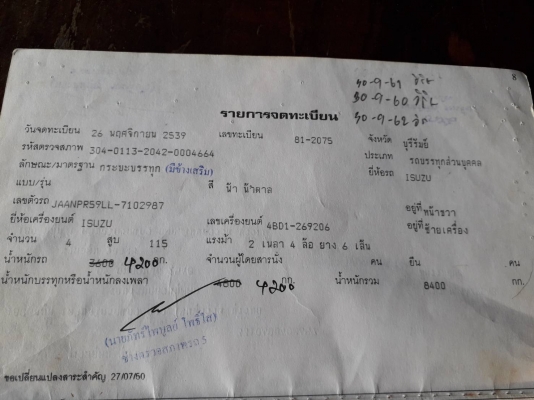 30-9-61
30-9-60
30-9-62
8
รายการจดทะเบียน
วันจดทะเบียน 26 พฤศจิกายน 2539 เลขทะเบียน 81-2075 จังหวัด บุรีรัมย์
รหัสตรวจสภาพ 304-0113-2042-0004664 ประเภท รถบรรทุกส่วนบุคคล
ลักษณะ/มาตรฐาน กระบะบรรทุก (มีข้างเสริม) ยี่ห้อรถ ISUZU
แบบ/รุ่น สี ฟ้า น้ำตาล
เลขตัวรถ JAANPR59LL-7102987 อยู่ที่ หน้าขวา
ยี่ห้อเครื่องยนต์ ISUZU เลขเครื่องยนต์ 4BD1-269206 อยู่ที่ ซ้ายเครื่อง
จำนวน 4 สูบ 115 แรงม้า 2 เพลา 4 ล้อ ยาง 6 เส้น
น้ำหนักรถ 3600 4200 กก. จำนวนผู้โดยสารนั่ง คน ยืน คน
น้ำหนักบรรทุกหรือน้ำหนักลงเพลา 4800 กก. 4200 น้ำหนักรวม 8400 กก.
ช่างตรวจสภาพรถ 5
ขอเปลี่ยนแปลงสาระสำคัญ 27/07/60